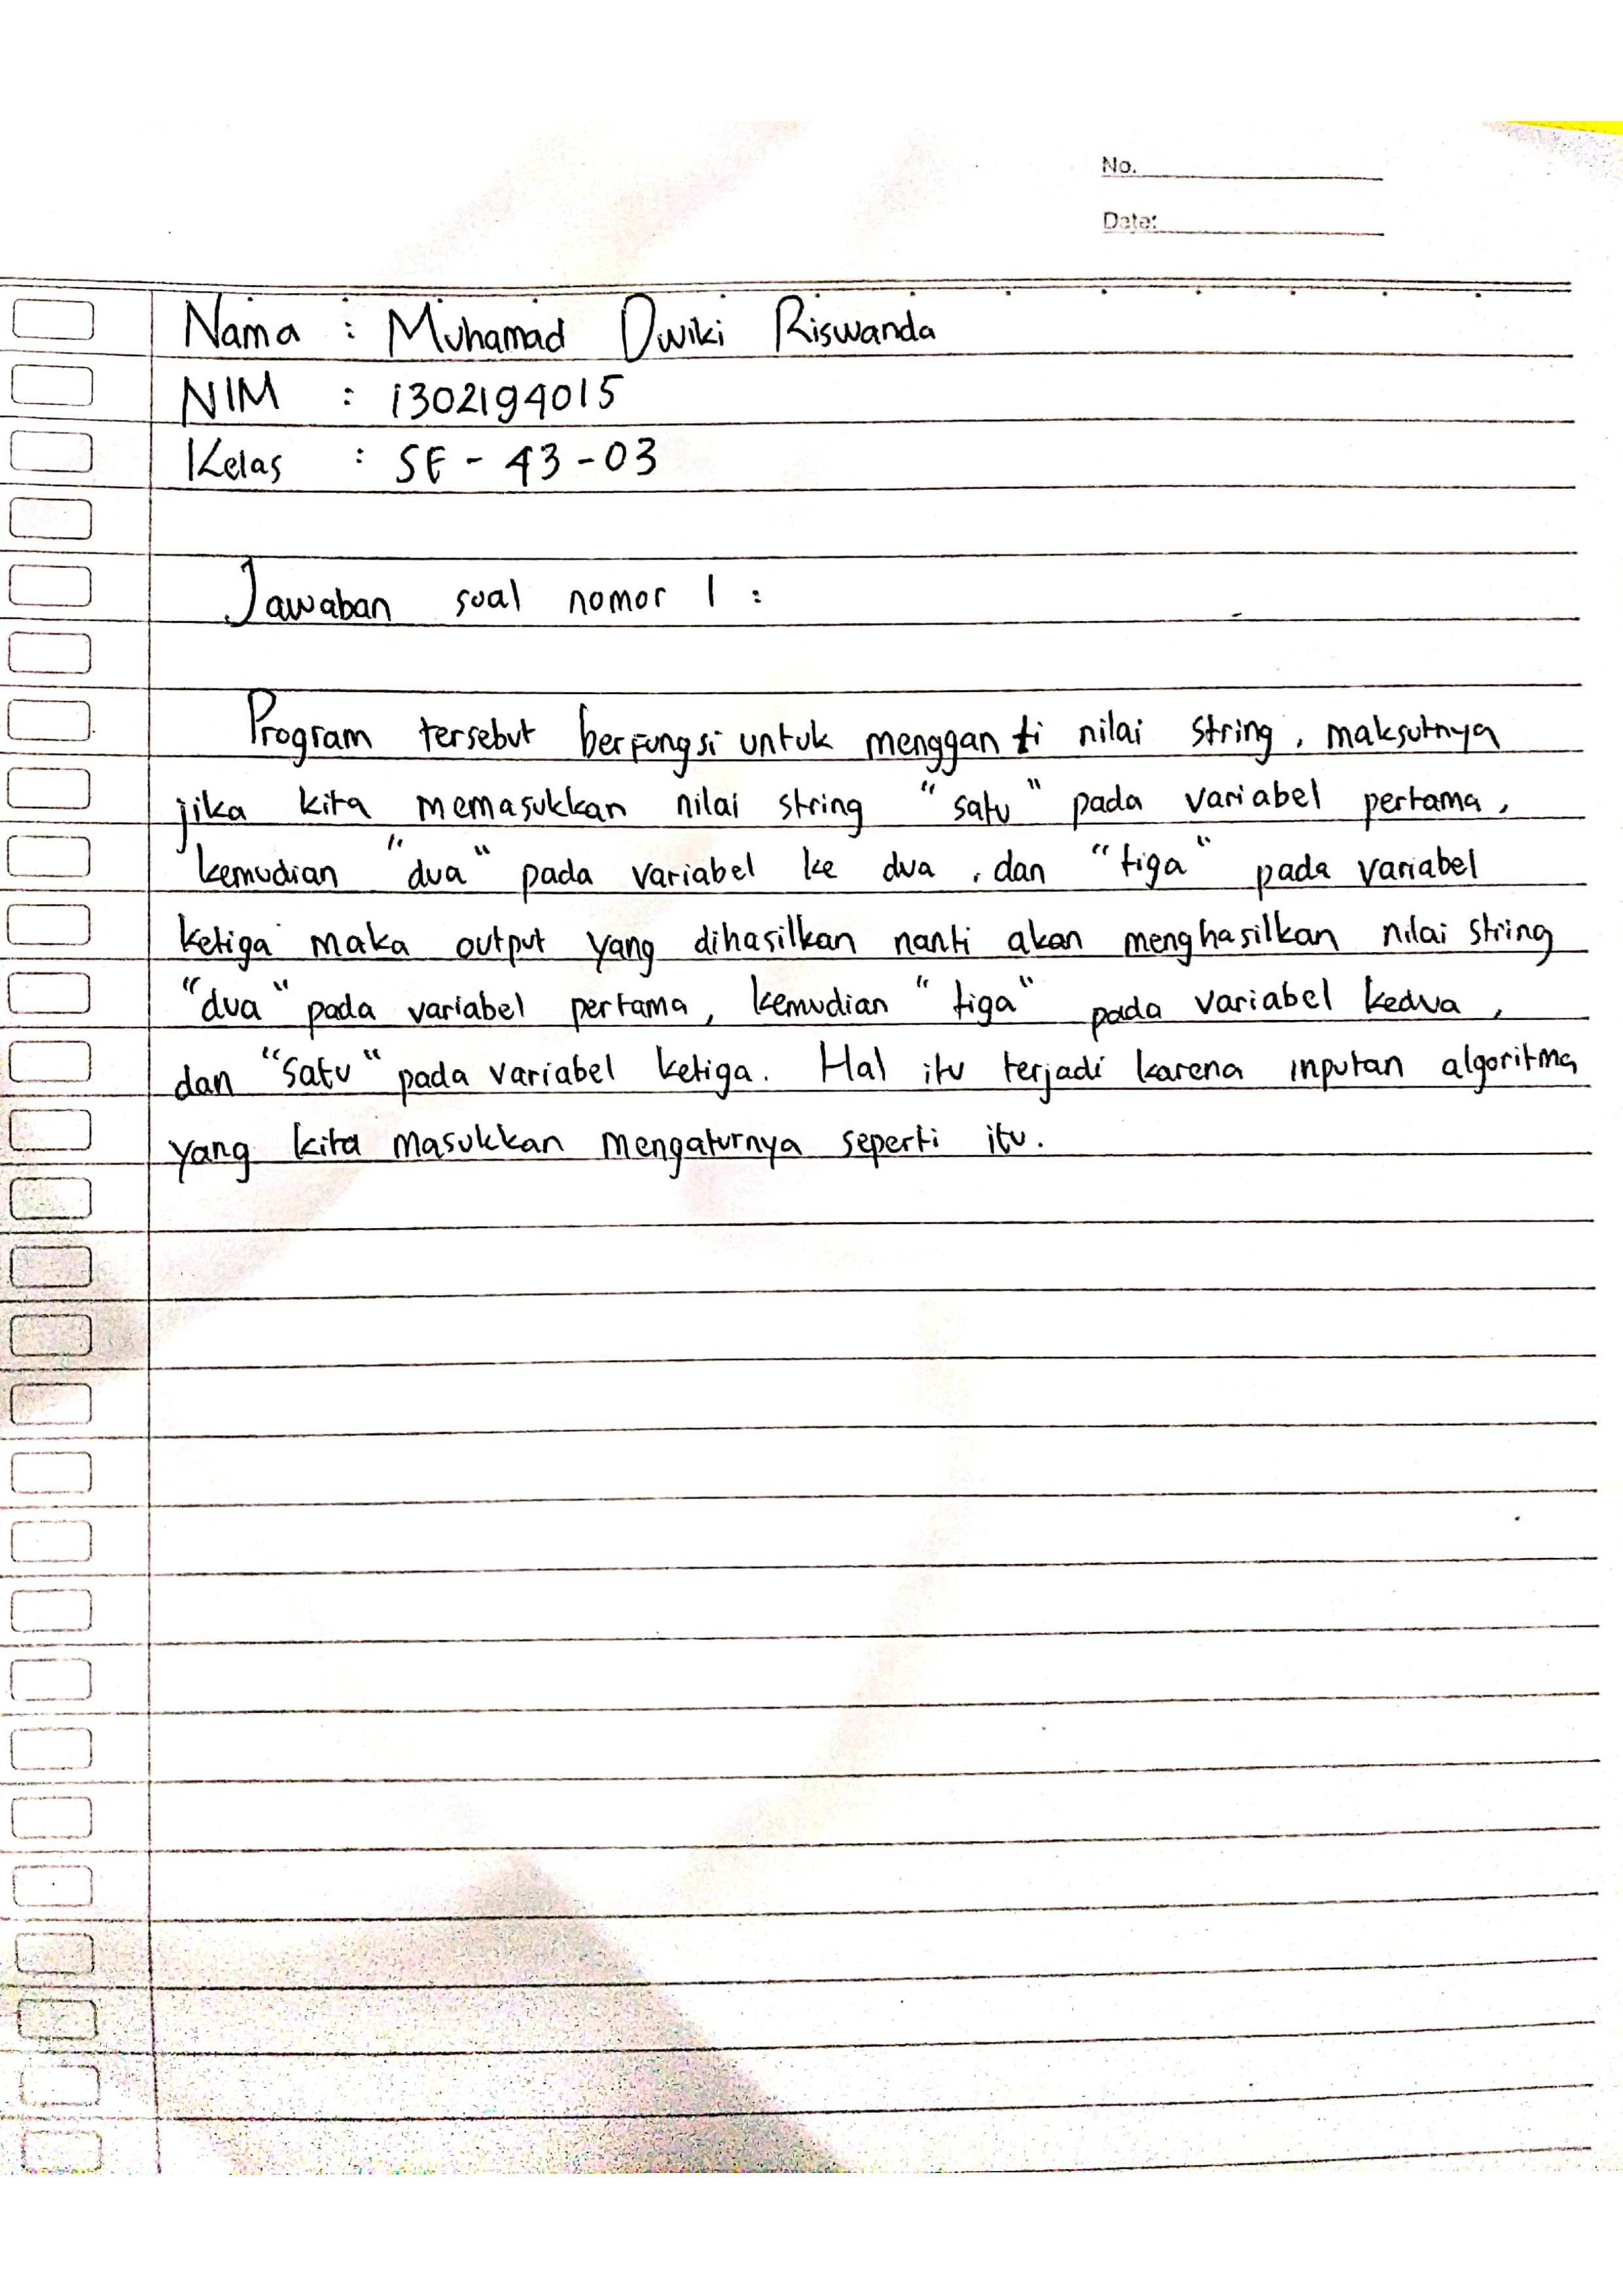 No.
Date:
Nama : Muhamad Dwiki Riswanda
NIM : 1302194015
Kelas : SE - 43 - 03
Jawaban soal nomor 1 :
Program tersebut berfungsi untuk mengganti nilai string, maksutnya
jika kita memasukkan nilai string "satu" pada variabel pertama,
kemudian "dua" pada variabel ke dua, dan "tiga" pada variabel
ketiga maka output yang dihasilkan nanti akan menghasilkan nilai string
"dua" pada variabel pertama, kemudian "tiga" pada variabel kedua,
dan "satu" pada variabel ketiga. Hal itu terjadi karena inputan algoritma
yang kita masukkan mengaturnya seperti itu.